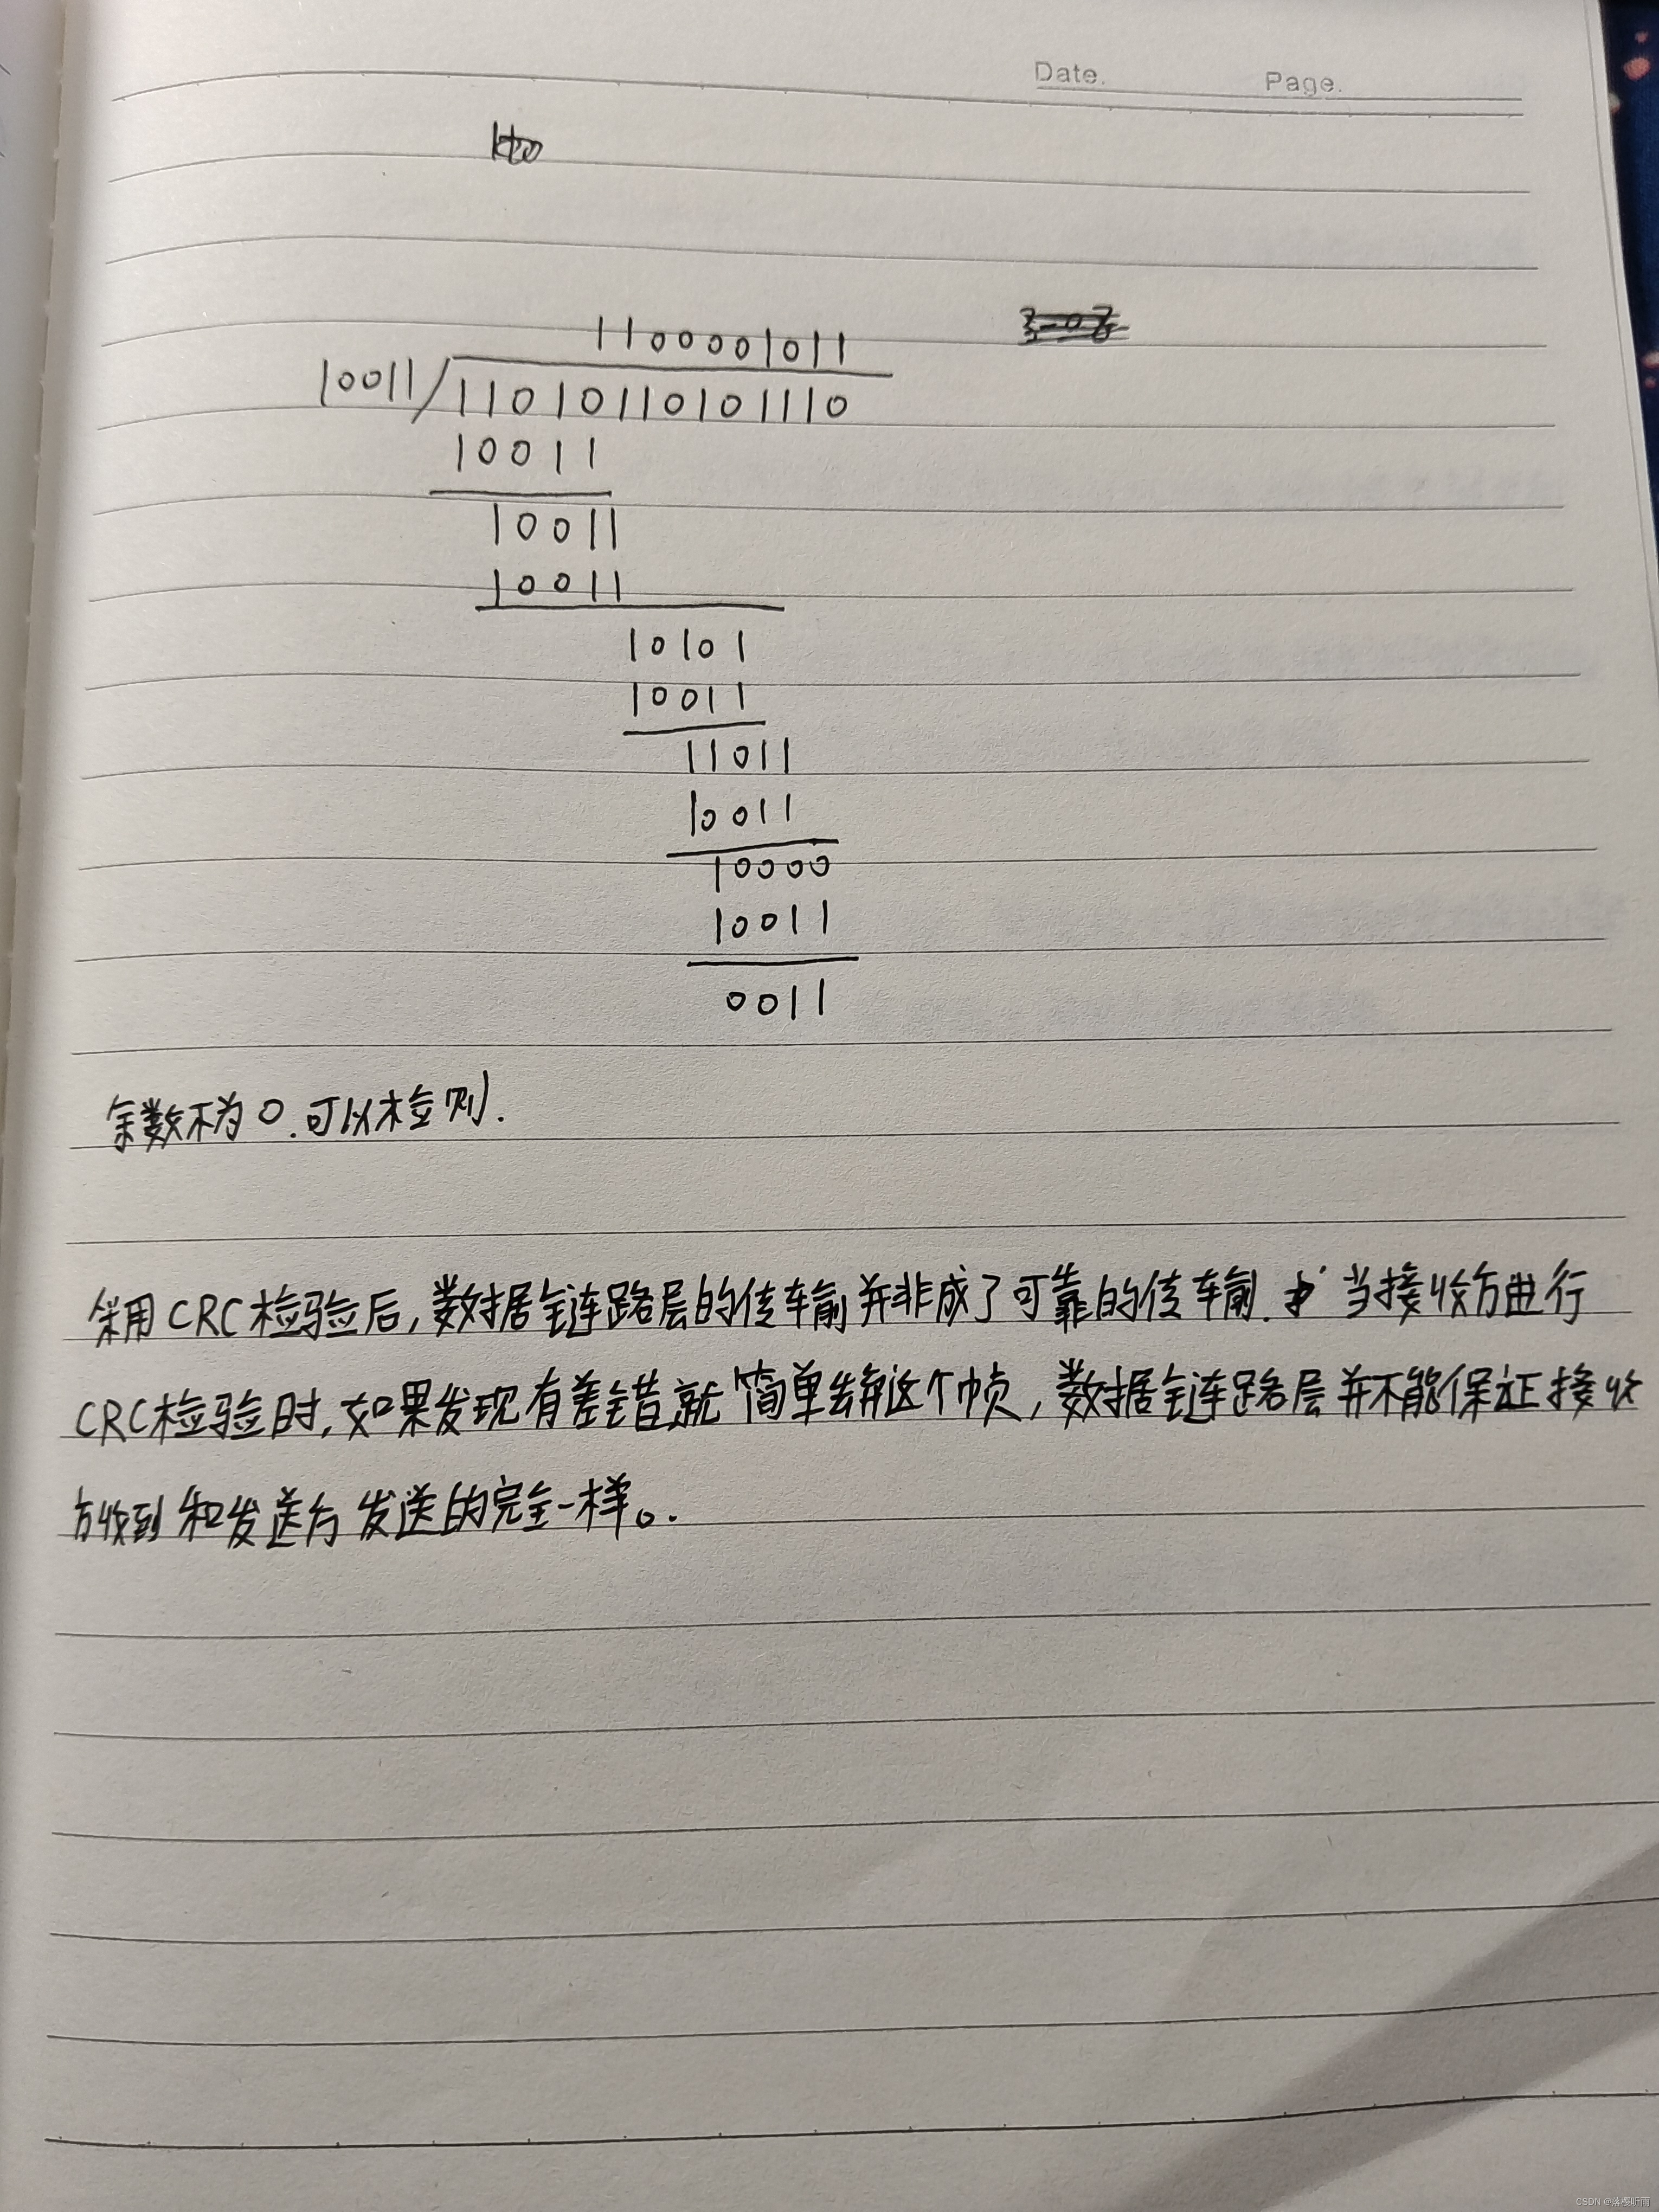 Date. Page.
1100001011
10011/11010110101110
10011
10011
10011
10101
10011
11011
10011
10000
10011
0011
余数不为0.可以检则.
采用CRC检验后,数据链路层的传输并非成了可靠的传输.当接收方进行
CRC检验时,如果发现有差错就简单丢弃这个帧,数据链路层并不能保证接收
方收到和发送方发送的完全一样。.
CSDN @落樱听雨